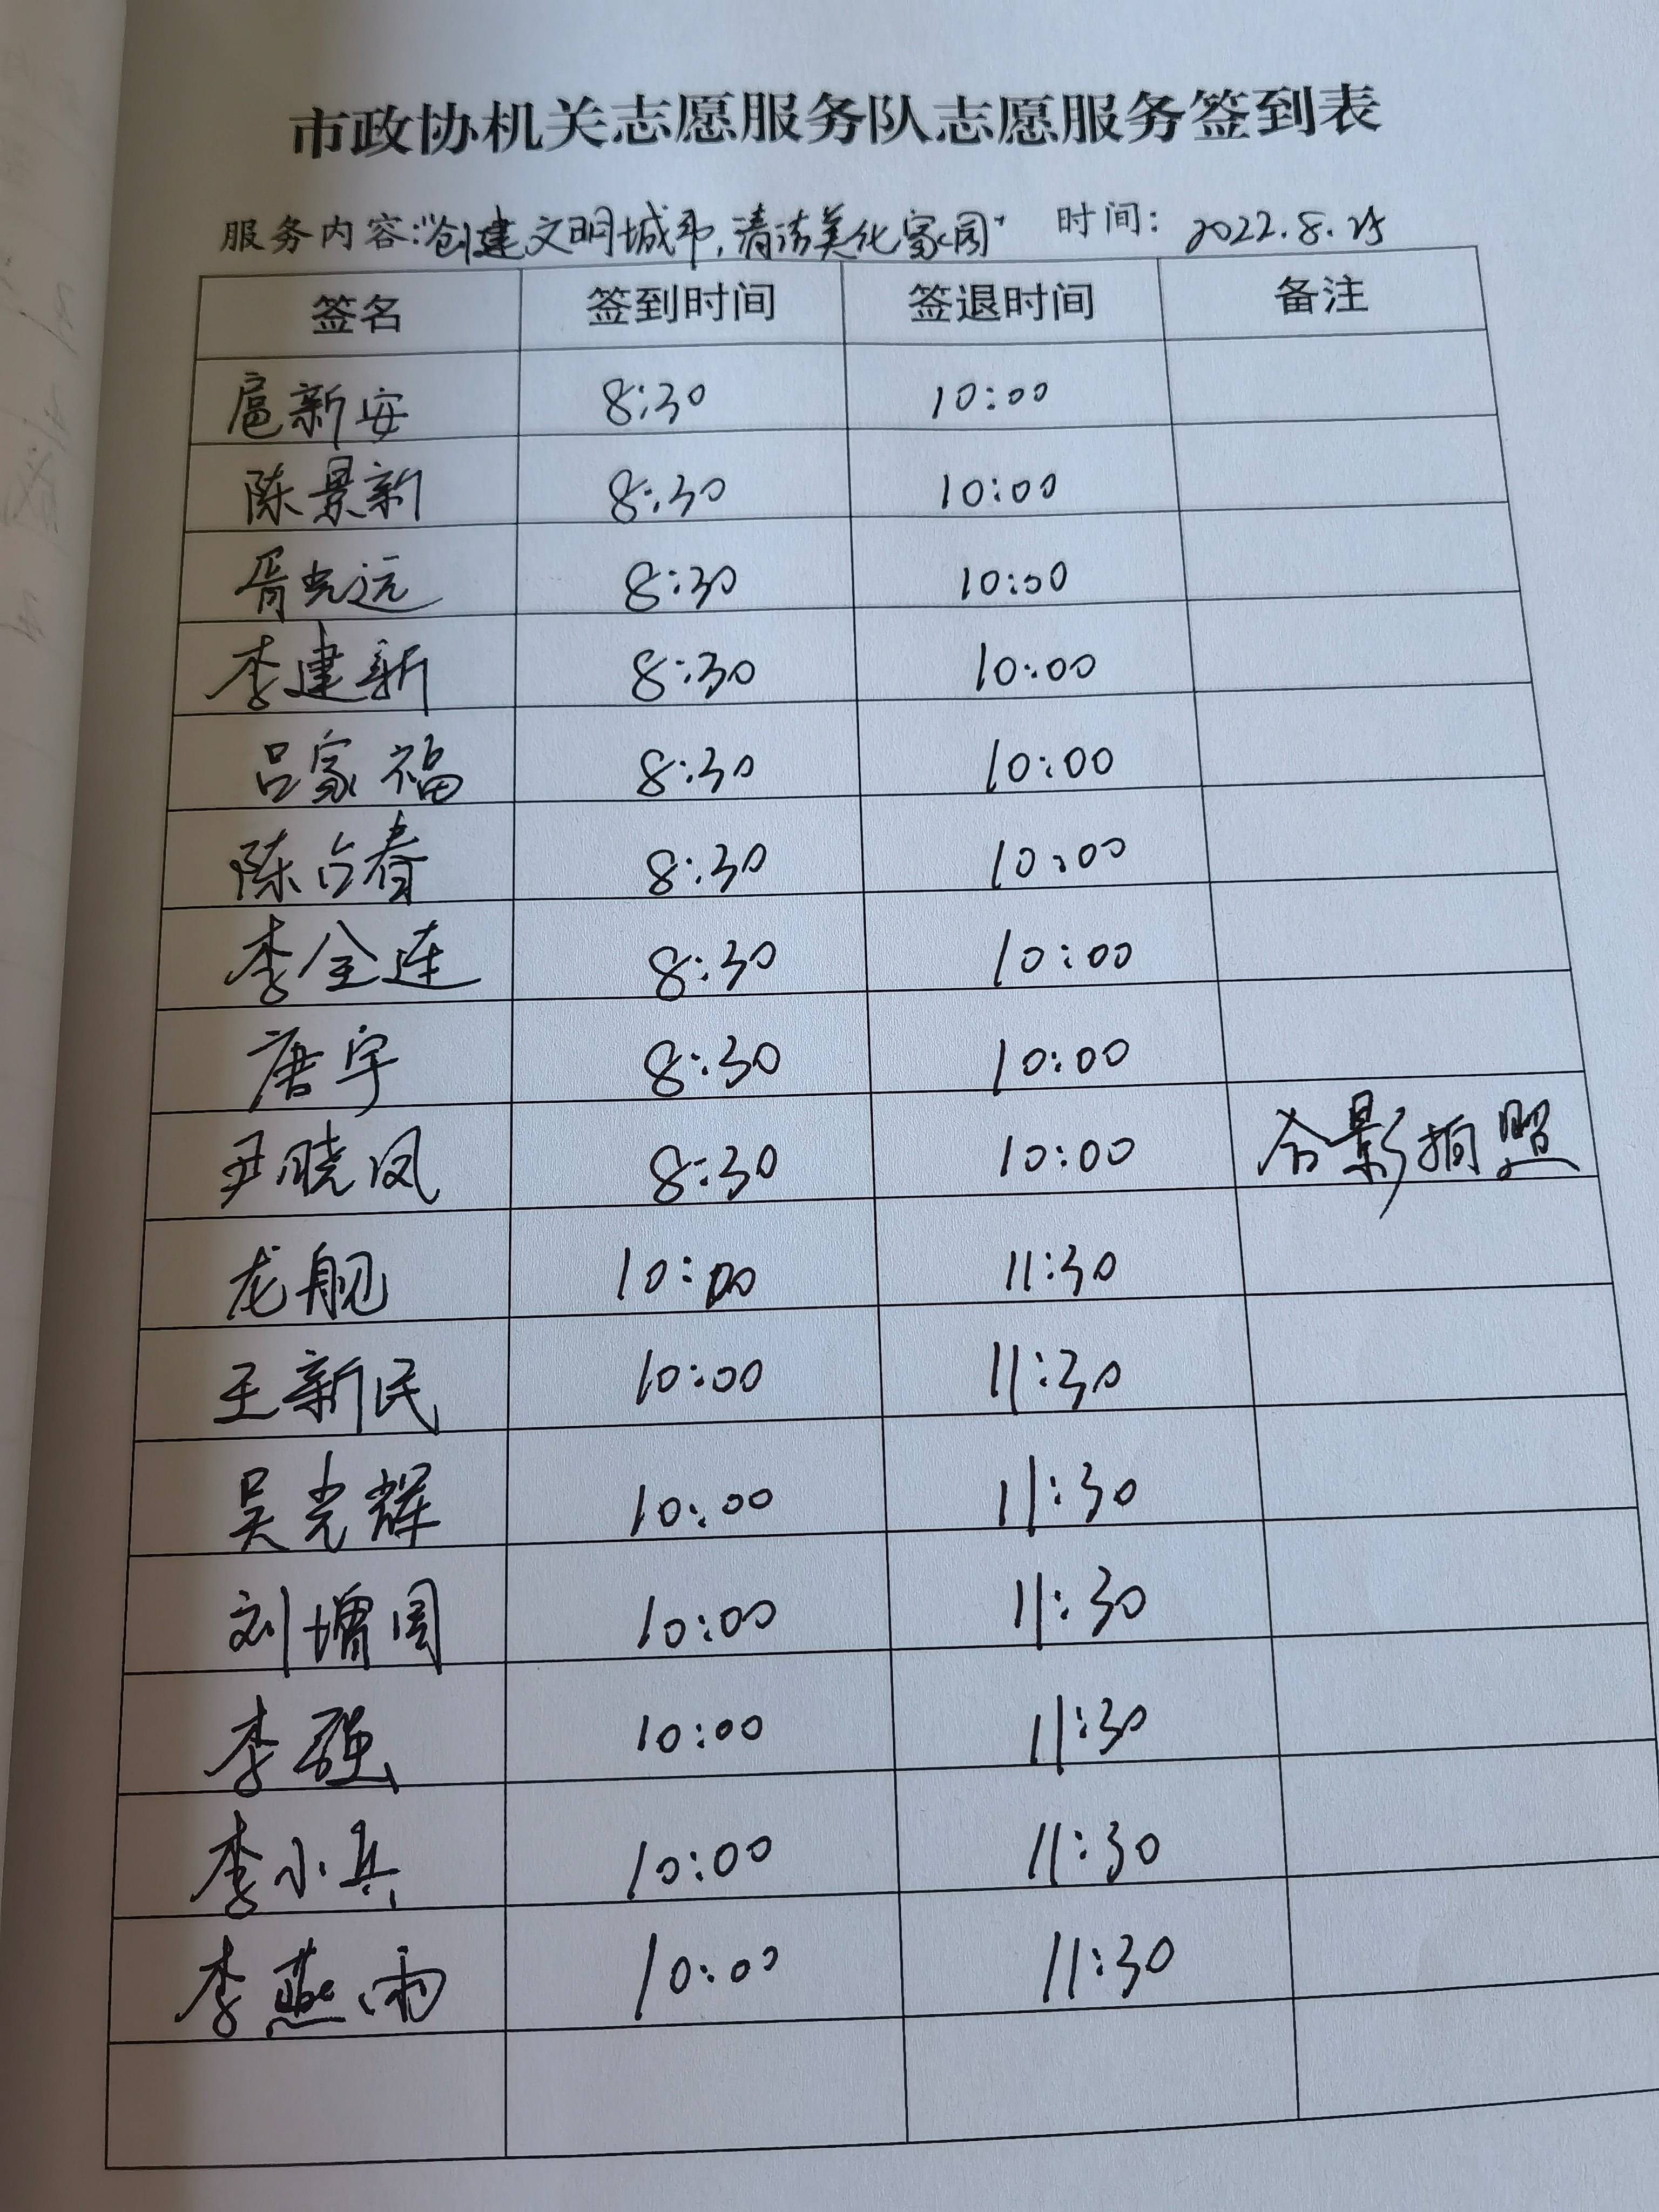 市政协机关志愿服务队志愿服务签到表
服务内容:"创建文明城市,清洁美化家园" 时间: 2022.8.25
签名 签到时间 签退时间 备注
扈新安 8:30 10:00
陈景新 8:30 10:00
胥光远 8:30 10:00
李建新 8:30 10:00
吕家福 8:30 10:00
陈占春 8:30 10:00
李全连 8:30 10:00
唐宇 8:30 10:00
尹晓凤 8:30 10:00 合影拍照
龙舰 10:00 11:30
王新民 10:00 11:30
吴光辉 10:00 11:30
刘增国 10:00 11:30
李强 10:00 11:30
李小兵 10:00 11:30
李燕雨 10:00 11:30